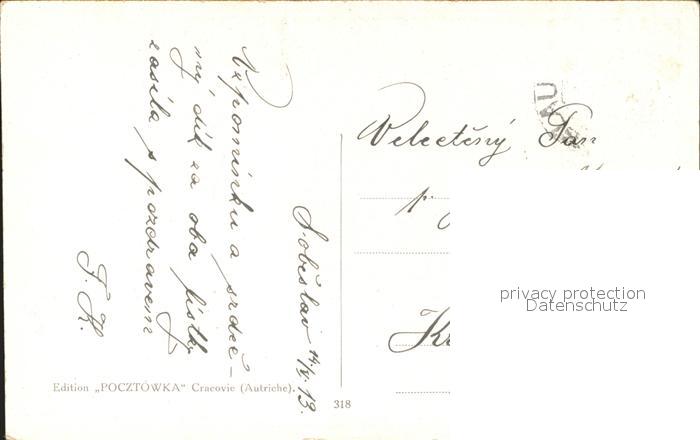 Vzpomínku a srdeč-
ný dík za oba lístky
zasílá s pozdravem
F. K.
Soběslav 14/V. 13.
Velectěný Pan
p.
Edition „POCZTÓWKA“ Cracovie (Autriche).
318
privacy protection
Datenschutz